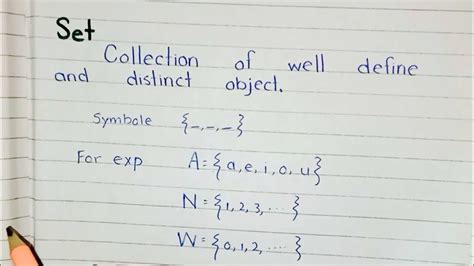 Set
Collection of well define
and distinct object.
Symbole {-,-,-}
For exp A={a,e,i,o,u}
N={1,2,3,....}
W={0,1,2,....}